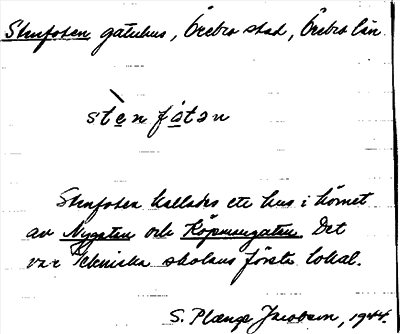 Stenfoten gatuhus, Örebro stad, Örebro län
stè̱n fó̱tən
Stenfoten kallades ett hus i hörnet
av Nygatan och Köpmangatan. Det
var Tekniska skolans första lokal.
S. Plænge Jacobson, 1944.